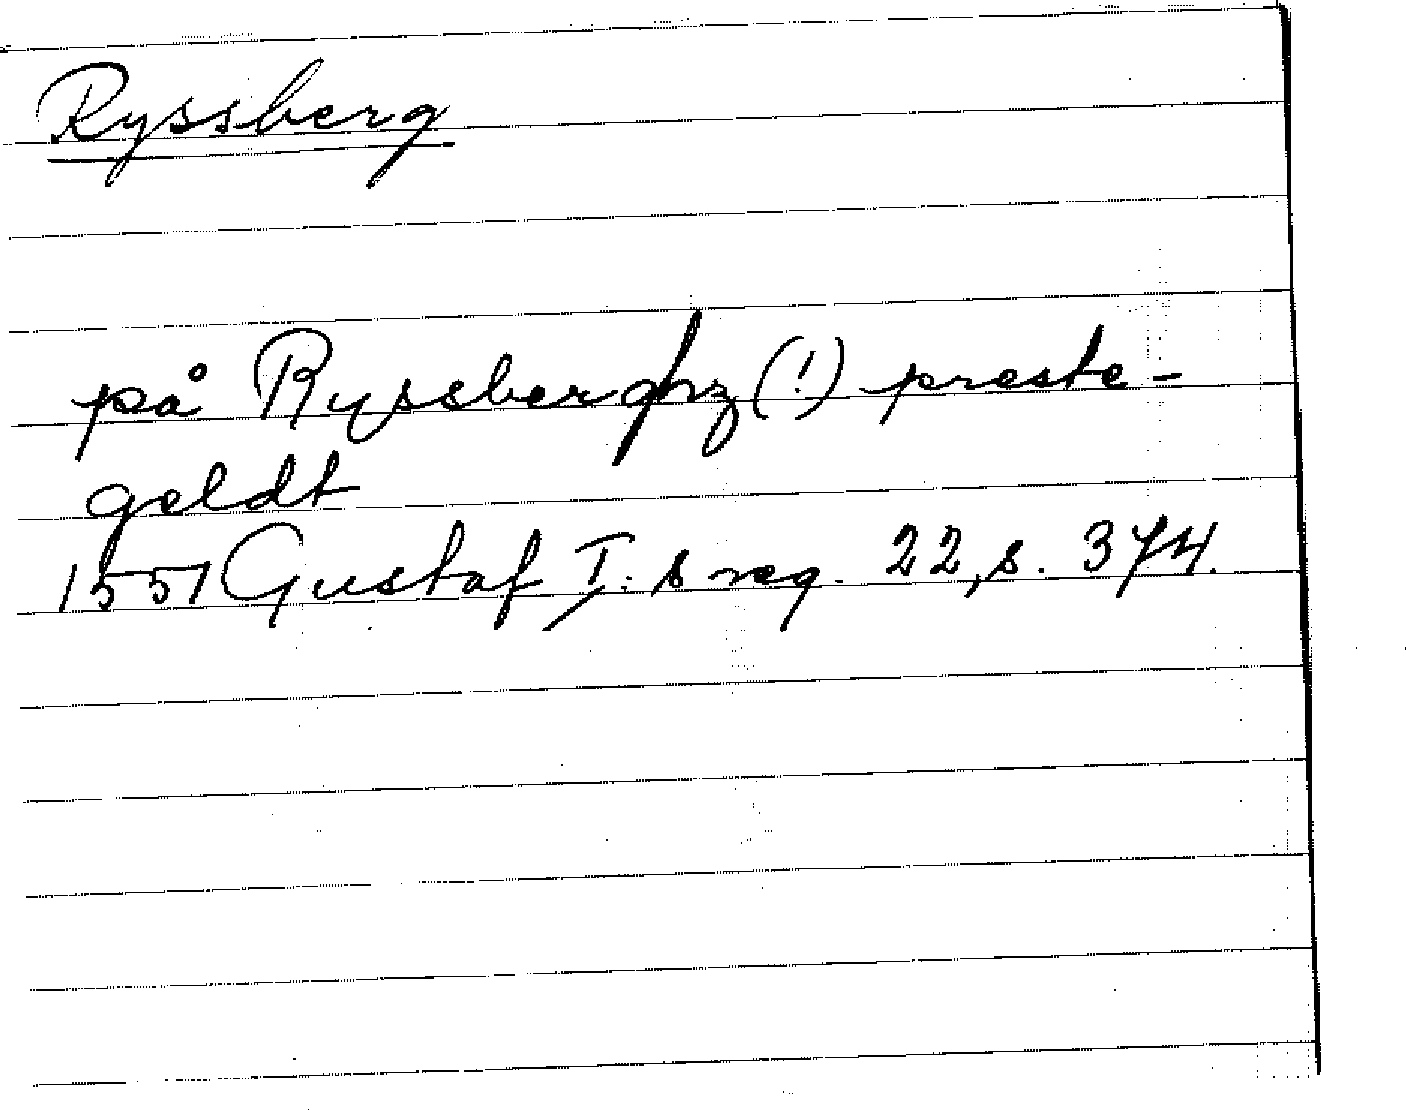 Ryssberg
på Ryssberghz (!) preste-
geldt
1551 Gustaf I:s reg. 22, s. 374.